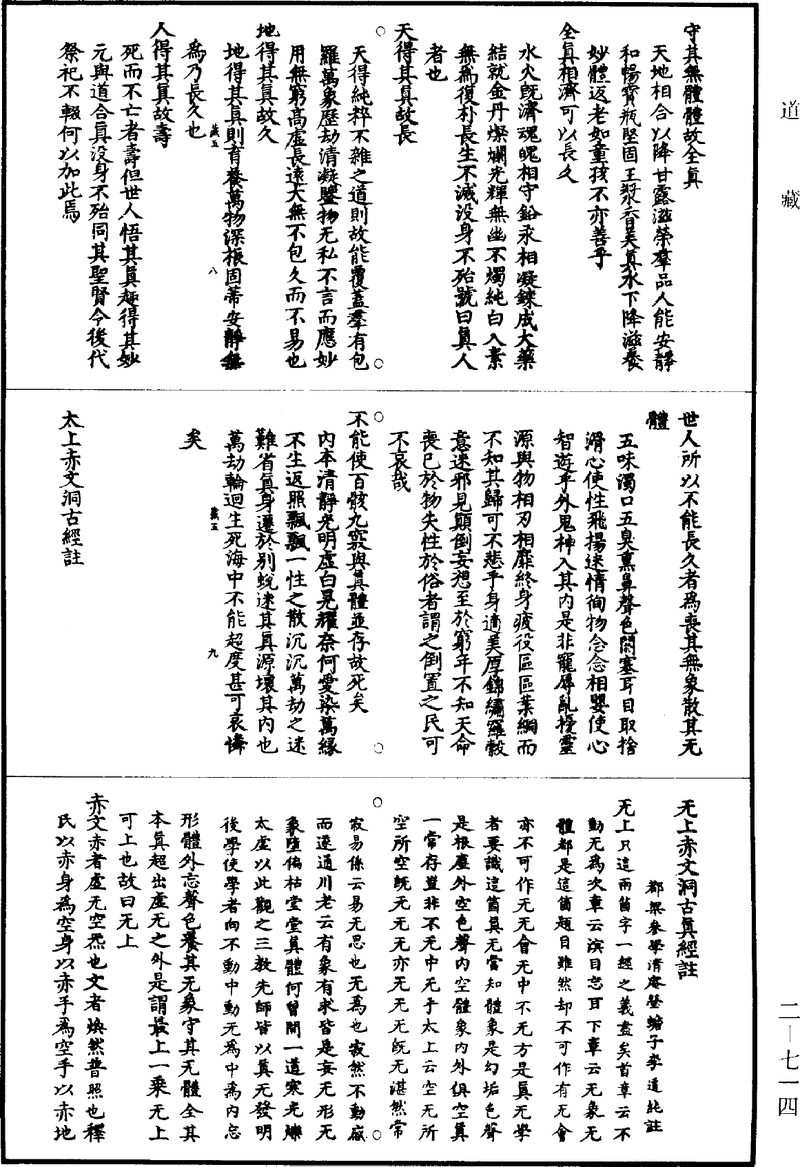 道藏
守其無體體故全真
天地相合以降甘露滋榮羣品人能安靜
和暢寶瓶堅固玉漿香美真水下降滋養
妙體返老如童孩不亦善乎
全真相濟可以長久
水火既濟魂魄相守鉛汞相凝鍊成大藥
結就金丹燦爛光輝無幽不燭純白入素
無為復朴長生不滅沒身不殆號曰真人
者也
天得其真故長
天得純粹不雜之道則故能覆蓋羣有包
羅萬象歷劫清凝鑒物无私不言而應妙
用無窮高虛長遠大無不包久而不易也
地得其真故久
地得其真則育養萬物深根固蒂安靜無
為乃長久也
八
人得其真故壽
死而不亡者壽但世人悟其真趣得其妙
元與道合真沒身不殆同其聖腎今後代
祭祀不輟何以加此焉
世人所以不能長久者為喪其無象散其无
體
五味濁口五臭熏鼻聲色閉塞耳目取捨
滑心使性飛揚迷情徇物念念相嬰使心
智遊乎外鬼神入其內是非寵辱亂擾靈
源與物相刃相靡終身疲役區區葉綱而
不知其歸可不悲乎身適美厚錦繡羅縠
意迷邪見顛倒妄想至於窮年不知天命
喪己於物失性於俗者謂之倒置之民可
不哀哉
不能使百骸九竅與真體並存故死矣
內本清靜光明虛白晃耀奈何愛染萬緣
不生返照飄飄一性之散沉沉萬劫之迷
難省真身遷於別蛻迷其真源壞其內也
萬劫輪迴生死海中不能超度甚可哀憐
矣
九
太上赤文洞古經註
无上赤文洞古真經註
都梁參學清庵瑩蟾子李道純註
无上只這兩箇字一經之義盡矣首章云不
動无為次章云濱目忘耳下章云无象无
體都是這箇題目雖然却不可作有无會
亦不可作无无會无中不无方是真无學
者要識這箇真无當知體象是幻垢色聲
是根塵外空色聲內空體象內外俱空真
一常存豈非不无中无乎太上云空无所
空所空既无无无亦无无无既无湛然常
寂易係云易无思也无為也寂然不動感
而遂通川老云有象有求皆是妄无形无
象墮偏枯堂堂真體何曾間一道寒光爍
太虛以此觀之三教先師皆以真无發明
後學使學者向不動中動无為中為內忘
形體外忘聲色養其无象守其无體全其
本真超出虛无之外是謂最上一乘无上
可上也故曰无上
赤文赤者虛无空炁也文者煥然普照也釋
民以赤身為空身以赤手為空手以赤地
二—七一四